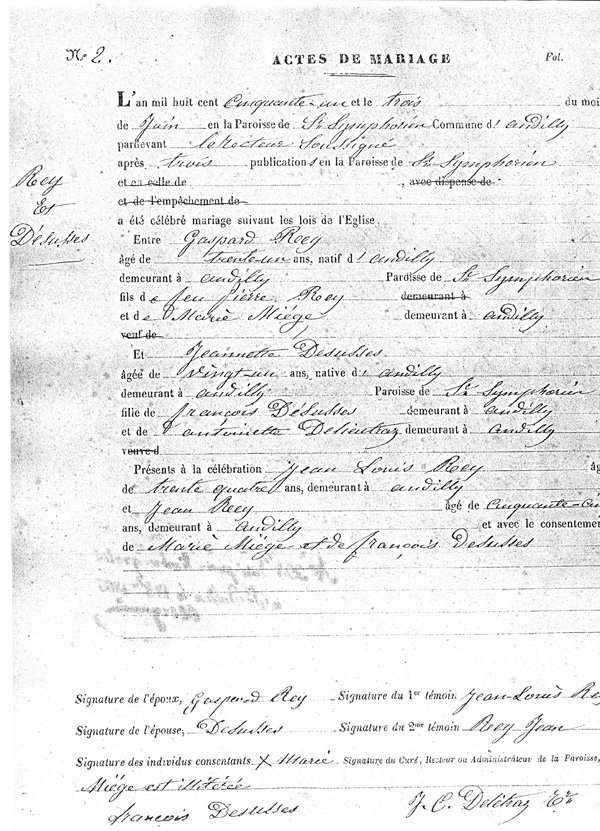 N.º 2.
ACTES DE MARIAGE
Fol.
Rey
Et
Désusses
L'an mil huit cent Cinquante-un et le trois du moi
de Juin en la Paroisse de St Symphorien Commune d'andilly
pardevant le recteur soussigné
après trois publications en la Paroisse de St Symphorien
et en celle de , avec dispense de
et de l'empêchement de
a été célébré mariage suivant les lois de l'Eglise,
Entre Gaspard Rey
âgé de trente-un ans, natif d'andilly
demeurant à andilly Paroisse de St Symphorien
fils de feu pierre Rey demeurant à
et de Marie Miége demeurant à andilly
veuf de
Et Jeannette Desusses
âgée de vingt-un ans, native d'andilly
demeurant à andilly Paroisse de St Symphorien
fille de françois Désusses demeurant à andilly
et de antoinette demeurant à andilly
veuve d
Présents à la célébration Jean Louis Rey âg
de trente quatre ans, demeurant à andilly
et Jean Rey âgé de Cinquante-
ans, demeurant à andilly et avec le consentemen
de Marie Miége et de françois Desusses
Signature de l'époux, Gaspard Rey
Signature du 1er témoin Jean-Louis Re
Signature de l'épouse, Desusses
Signature du 2me témoin Rey Jean
Signature des individus consentants X Marie
Signature du Curé, Recteur ou Administrateur de la Paroisse,
Miége est illitérée
françois Desusses
J. C. Delétraz